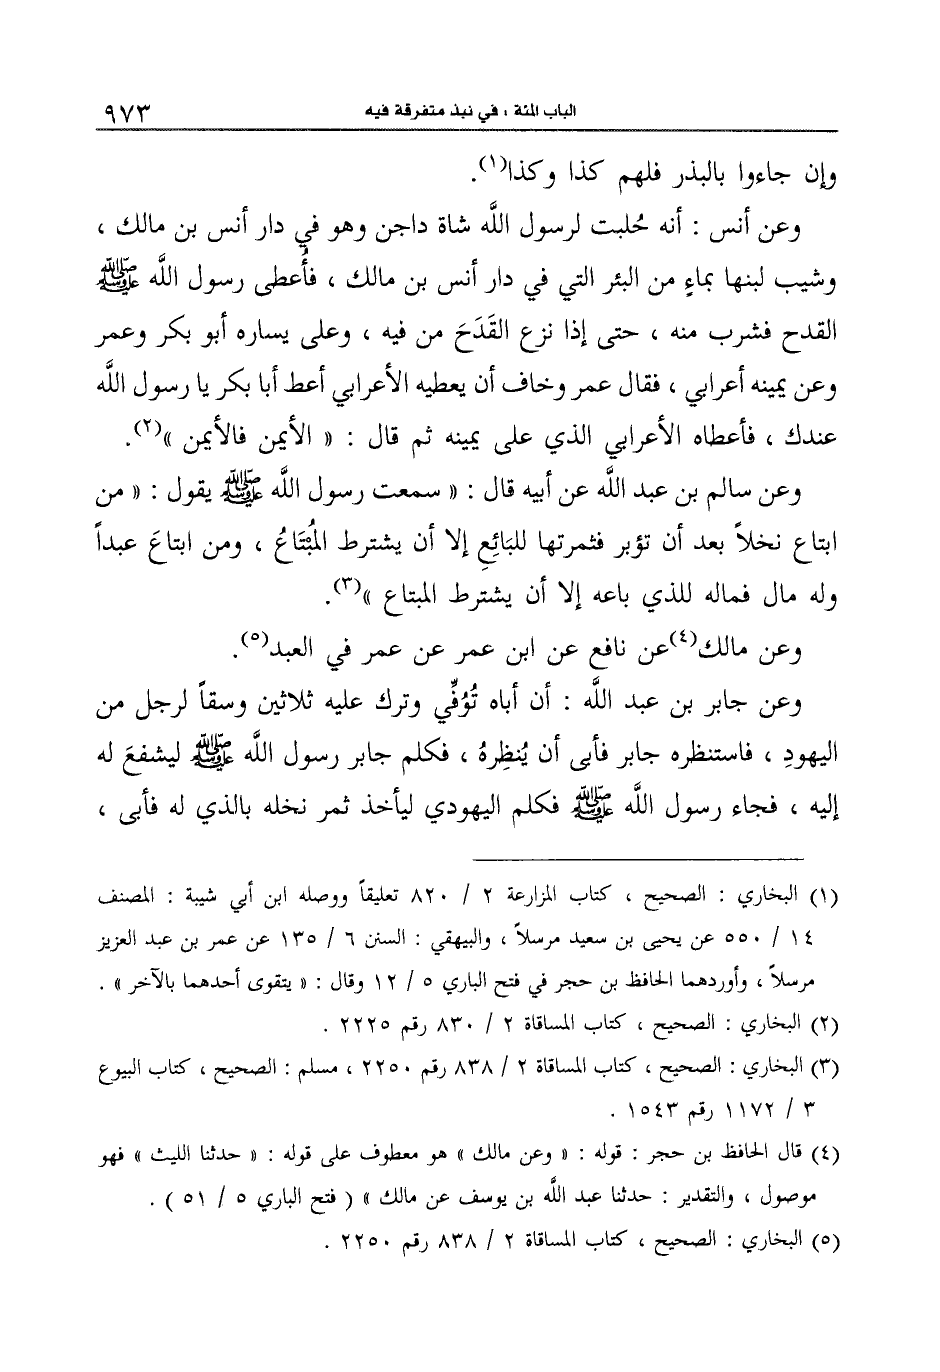 الباب المئة : في نبذ متفرقة فيه ٩٧٣
وإن جاءوا بالبذر فلهم كذا وكذا(١).
وعن أنس : أنه حُلبت لرسول اللَّه شاة داجن وهو في دار أنس بن مالك ،
وشيب لبنها بماءٍ من البئر التي في دار أنس بن مالك ، فأُعطى رسول اللَّه ﷺ
القدح فشرب منه ، حتى إذا نزع القَدَحَ من فيه ، وعلى يساره أبو بكر وعمر
وعن يمينه أعرابي ، فقال عمر وخاف أن يعطيه الأعرابي أعط أبا بكر يا رسول اللَّه
عندك ، فأعطاه الأعرابي الذي على يمينه ثم قال : « الأيمن فالأيمن »(٢).
وعن سالم بن عبد اللَّه عن أبيه قال : « سمعت رسول اللَّه ﷺ يقول : « من
ابتاع نخلاً بعد أن تؤبر فثمرتها للبَائِعِ إلا أن يشترط المُبْتَاعُ ، ومن ابتاعَ عبداً
وله مال فماله للذي باعه إلا أن يشترط المبتاع »(٣).
وعن مالك(٤)عن نافع عن ابن عمر عن عمر في العبد(٥).
وعن جابر بن عبد اللَّه : أن أباه تُوُفِّي وترك عليه ثلاثين وسقاً لرجل من
اليهودِ ، فاستنظره جابر فأبى أن يُنظِرهُ ، فكلم جابر رسول اللَّه ﷺ ليشفعَ له
إليه ، فجاء رسول اللَّه ﷺ فكلم اليهودي ليأخذ ثمر نخله بالذي له فأبى ،
(١) البخاري : الصحيح ، كتاب المزارعة ٢ / ٨٢٠ تعليقاً ووصله ابن أبي شيبة : المصنف
١٤ / ٥٥٠ عن يحيى بن سعيد مرسلاً ، والبيهقي : السنن ٦ / ١٣٥ عن عمر بن عبد العزيز
مرسلاً ، وأوردهما الحافظ بن حجر في فتح الباري ٥ / ١٢ وقال : « يتقوى أحدهما بالآخر » .
(٢) البخاري : الصحيح ، كتاب المساقاة ٢ / ٨٣٠ رقم ٢٢٢٥ .
(٣) البخاري : الصحيح ، كتاب المساقاة ٢ / ٨٣٨ رقم ٢٢٥٠ ، مسلم : الصحيح ، كتاب البيوع
٣ / ١١٧٢ رقم ١٥٤٣ .
(٤) قال الحافظ بن حجر : قوله : « وعن مالك » هو معطوف على قوله : « حدثنا الليث » فهو
موصول ، والتقدير : حدثنا عبد اللَّه بن يوسف عن مالك » ( فتح الباري ٥ / ٥١ ) .
(٥) البخاري : الصحيح ، كتاب المساقاة ٢ / ٨٣٨ رقم ٢٢٥٠ .